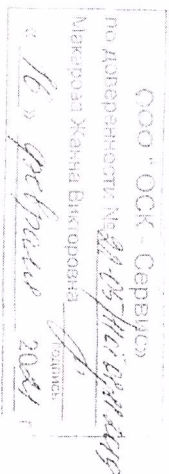 ООО "ОСК - Сервис»
по доверенности №
Макарова Жанна Викторовна
подпись
« 16 » февраля 2021 г